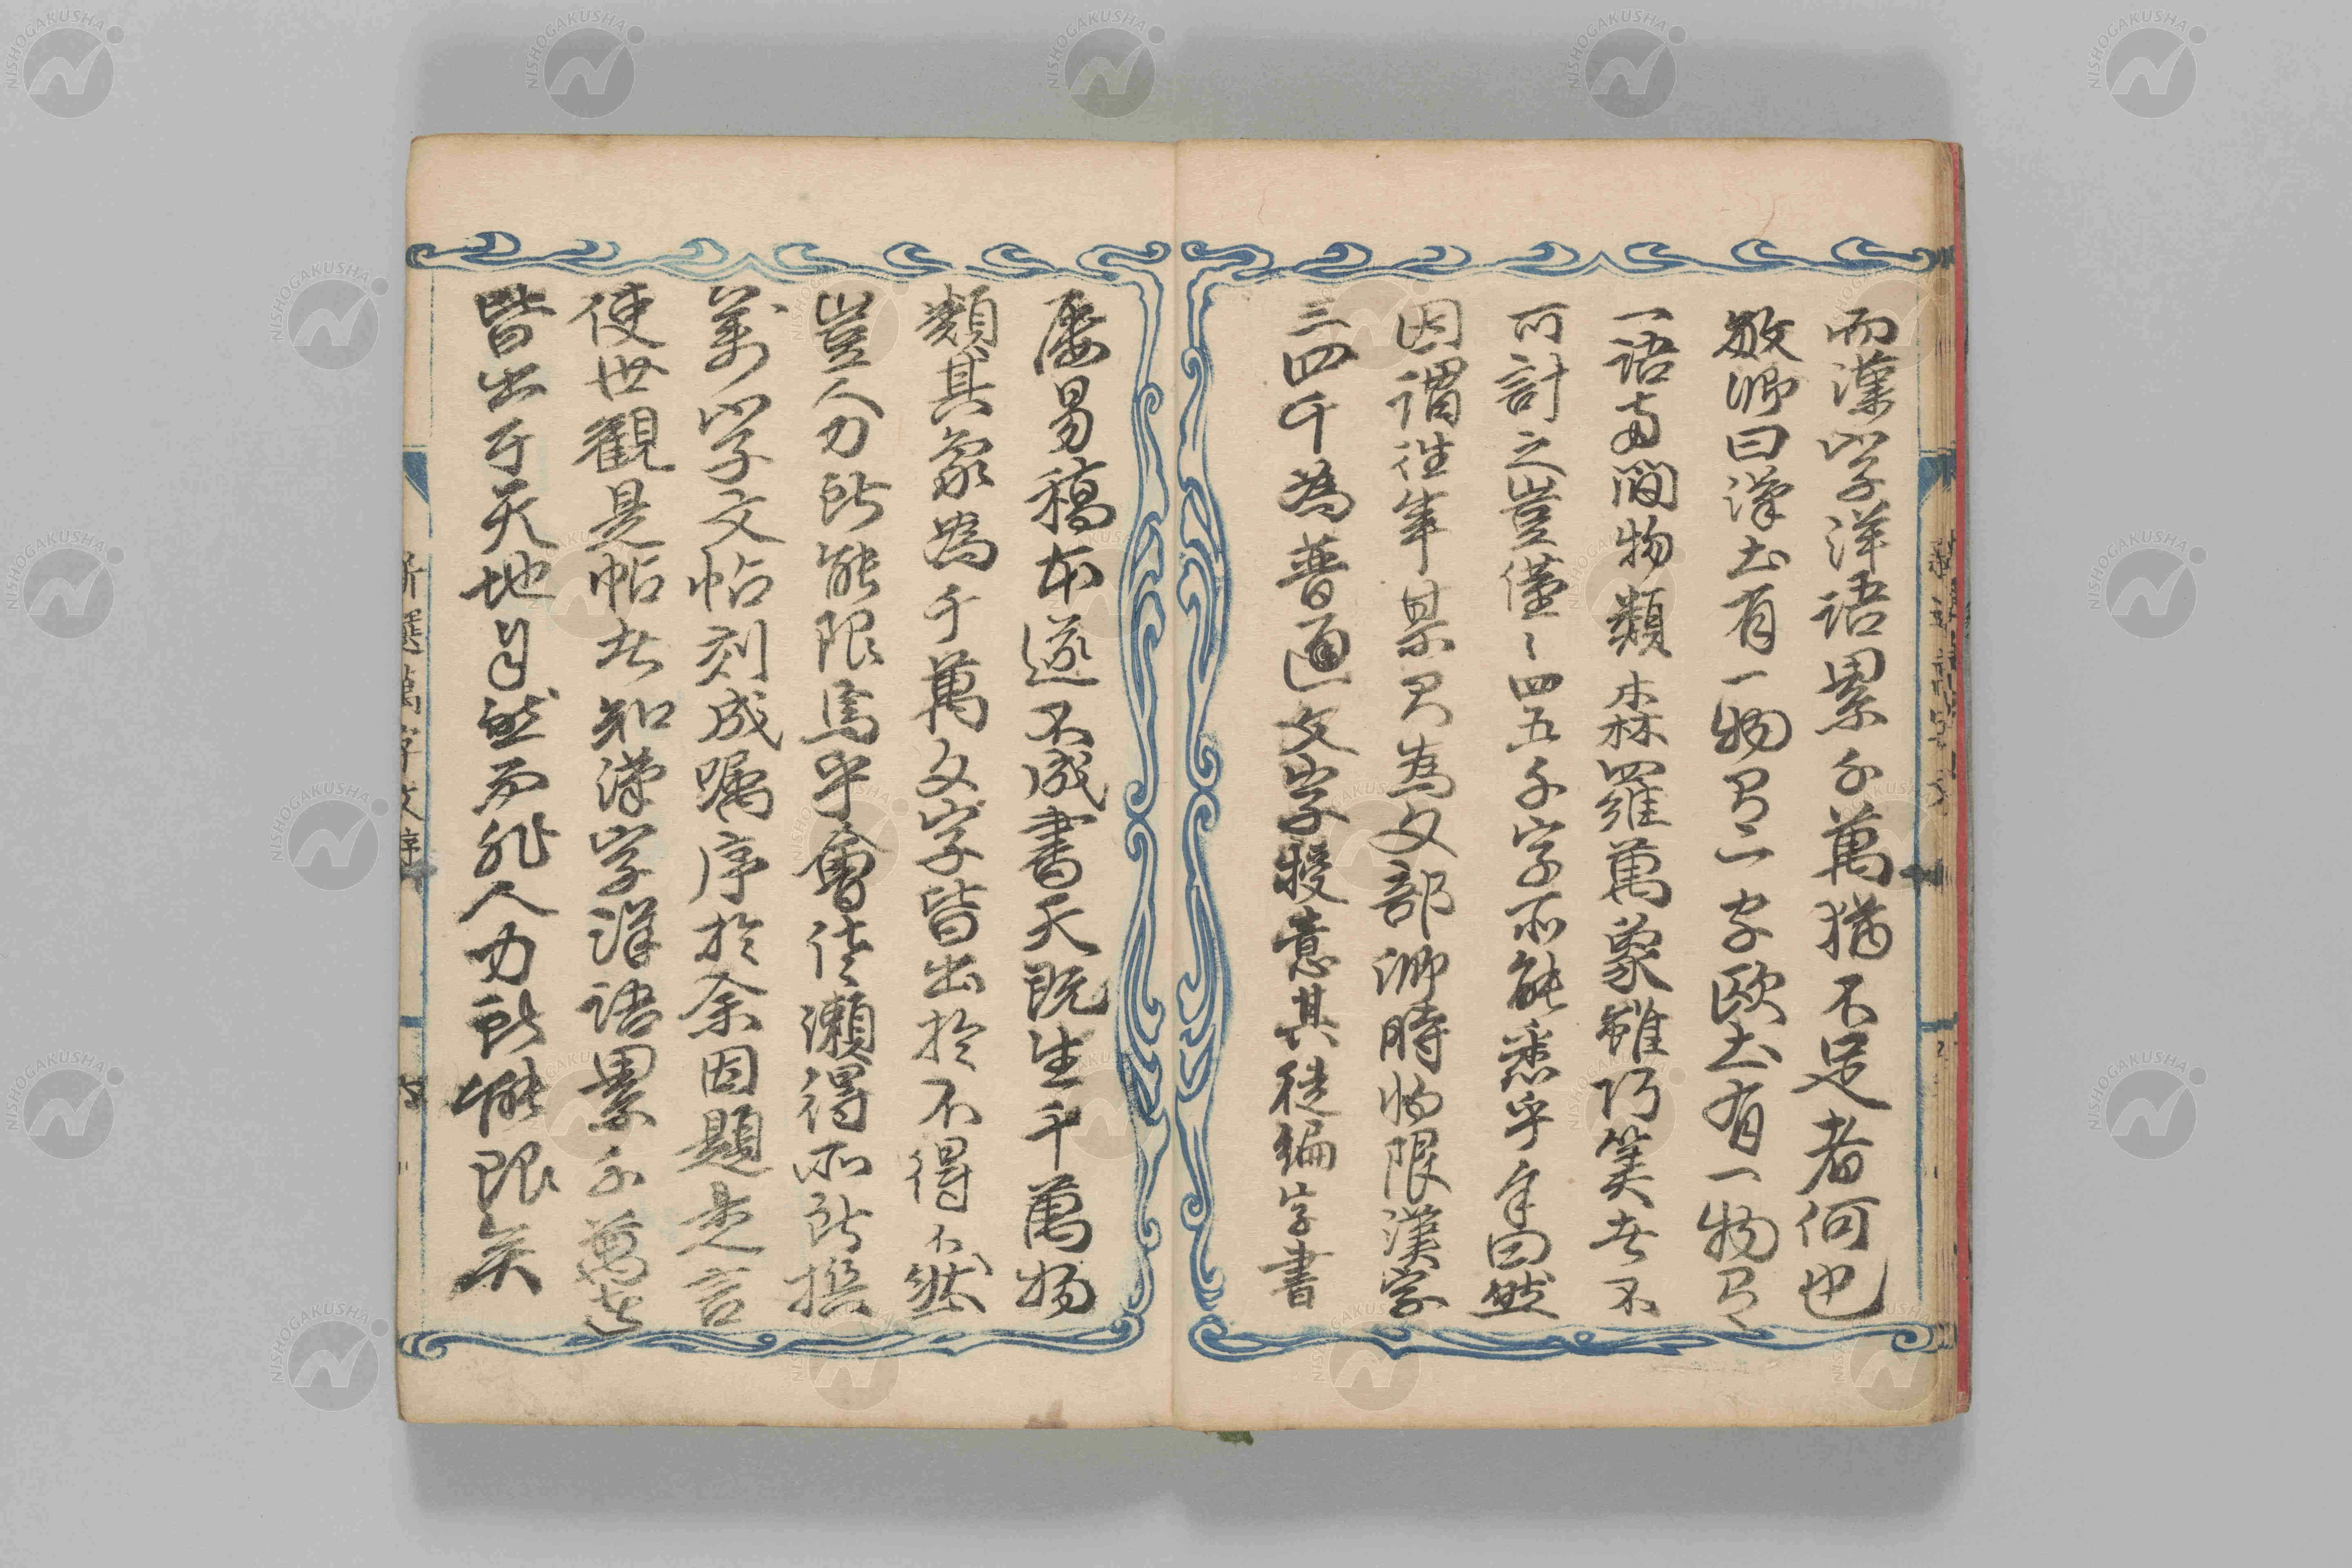 而漢字洋語累千萬猶不足者何也
敬卿曰漢土有一物即一字歐土有一物即
一語而両間物類森羅萬象雖巧算者不
可計之豈僅々四五千字所能悉乎余曰然
因謂往年某君為文部卿時為限漢字
三四千為普通文字授意其徒編字書
屡易稿本遂不成書夫既生千萬物
類其象為千萬文字皆出於不得不然
豈人力所能限焉乎會佳瀬得所所撰
萬字文帖刻成嘱序於余因題是言
使世觀是帖者知漢字洋語累千萬者
皆出于天地自然而非人力所能限矣
新選萬字文序
NISHOGAKUSHA